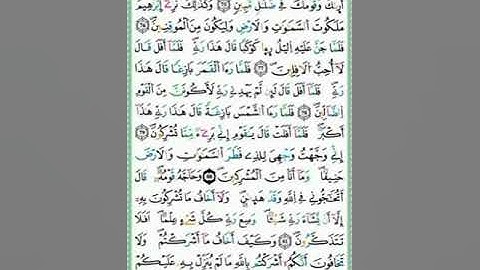 أَر۪يٰكَ وَقَوْمَكَ فِے ضَلَٰلٖ مُّبِينٖ ۝٧٥ وَكَذَٰلِكَ نُرِےٓ إِبْرَٰهِيمَ
مَلَكُوتَ اَ۬لسَّمَٰوَٰتِ وَالَارْضِ وَلِيَكُونَ مِنَ اَ۬لْمُوقِنِينَۖ ۝٧٦
فَلَمَّا جَنَّ عَلَيْهِ اِ۬ليْلُ ر۪ء۪ا كَوْكَباٗ قَالَ هَٰذَا رَبِّےۖ فَلَمَّآ أَفَلَ قَالَ
لَآ أُحِبُّ اُ۬لَافِلِينَۖ ۝٧٧ فَلَمَّا رَءَا اَ۬لْقَمَرَ بَازِغاٗ قَالَ هَٰذَا
رَبِّےۖ فَلَمَّآ أَفَلَ قَالَ لَئِن لَّمْ يَهْدِنِے رَبِّے لَأَكُونَنَّ مِنَ اَ۬لْقَوْمِ
اِ۬لضَّآلِّينَۖ ۝٧٨ فَلَمَّا رَءَا اَ۬لشَّمْسَ بَازِغَةٗ قَالَ هَٰذَا رَبِّے هَٰذَآ
أَكْبَرُۖ فَلَمَّآ أَفَلَتْ قَالَ يَٰقَوْمِ إِنِّے بَرِےٓءٞ مِّمَّا تُشْرِكُونَۖ ۝٧٩
إِنِّے وَجَّهْتُ وَجْهِيَ لِلذِے فَطَرَ اَ۬لسَّمَٰوَٰتِ وَالَارْضَ
حَنِيفاٗۖ وَمَآ أَنَا مِنَ اَ۬لْمُشْرِكِينَۖ ۝٨٠ وَحَآجَّهُۥ قَوْمُهُۥۖ قَالَ
أَتُحَٰٓجُّونِے فِے اِ۬للَّهِ وَقَدْ هَد۪يٰنِۖ وَلَآ أَخَافُ مَا تُشْرِكُونَ بِهِۦٓ
إِلَّآ أَنْ يَّشَآءَ رَبِّے شَيْـٔاٗۖ وَسِعَ رَبِّے كُلَّ شَےْءٍ عِلْماًۖ اَفَلَا
تَتَذَكَّرُونَۖ ۝٨١ وَكَيْفَ أَخَافُ مَآ أَشْرَكْتُمْ وَلَا
تَخَافُونَ أَنَّكُمُۥٓ أَشْرَكْتُم بِاللَّهِ مَا لَمْ يُنَزِّلْ بِهِۦ عَلَيْكُمْ